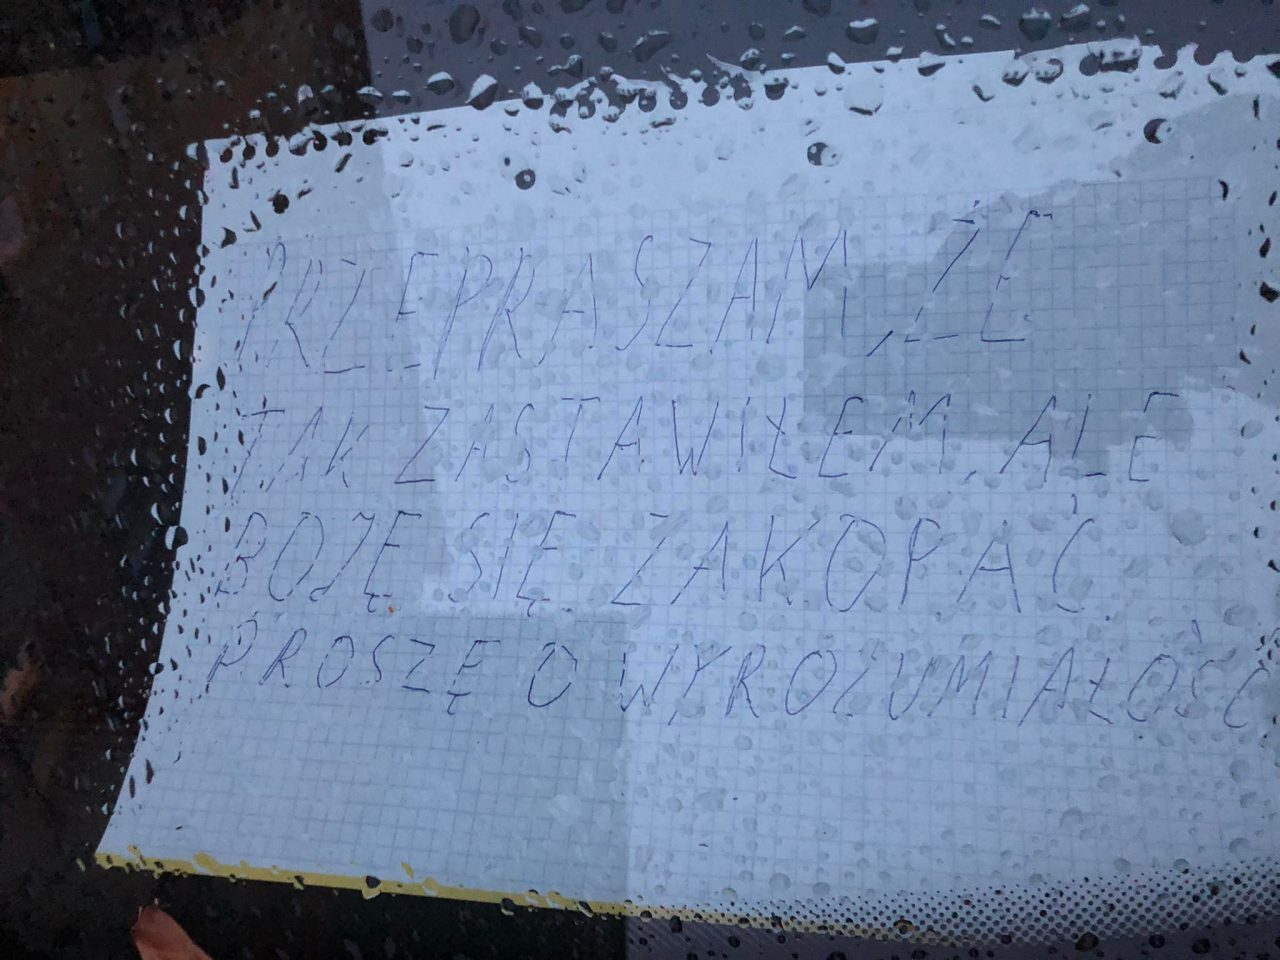 PRZEPRASZAM, ŻE
TAK ZASTAWIŁEM, ALE
BOJĘ SIĘ ZAKOPAĆ
PROSZĘ O WYROZUMIAŁOŚĆ